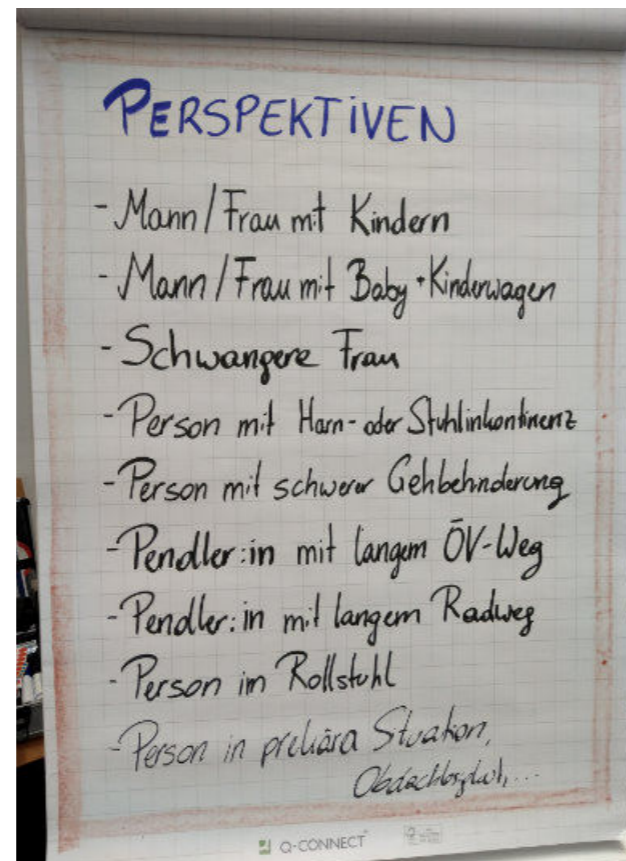 PERSPEKTiVEN
- Mann/Frau mit Kindern
- Mann/Frau mit Baby + Kinderwagen
- Schwangere Frau
- Person mit Harn- oder Stuhlinkontinenz
- Person mit schwerer Gehbehinderung
- Pendler:in mit langem ÖV-Weg
- Pendler:in mit langem Radweg
- Person im Rollstuhl
- Person in prekära Situation,
Obdachlosigkeit, ...
Q-CONNECT